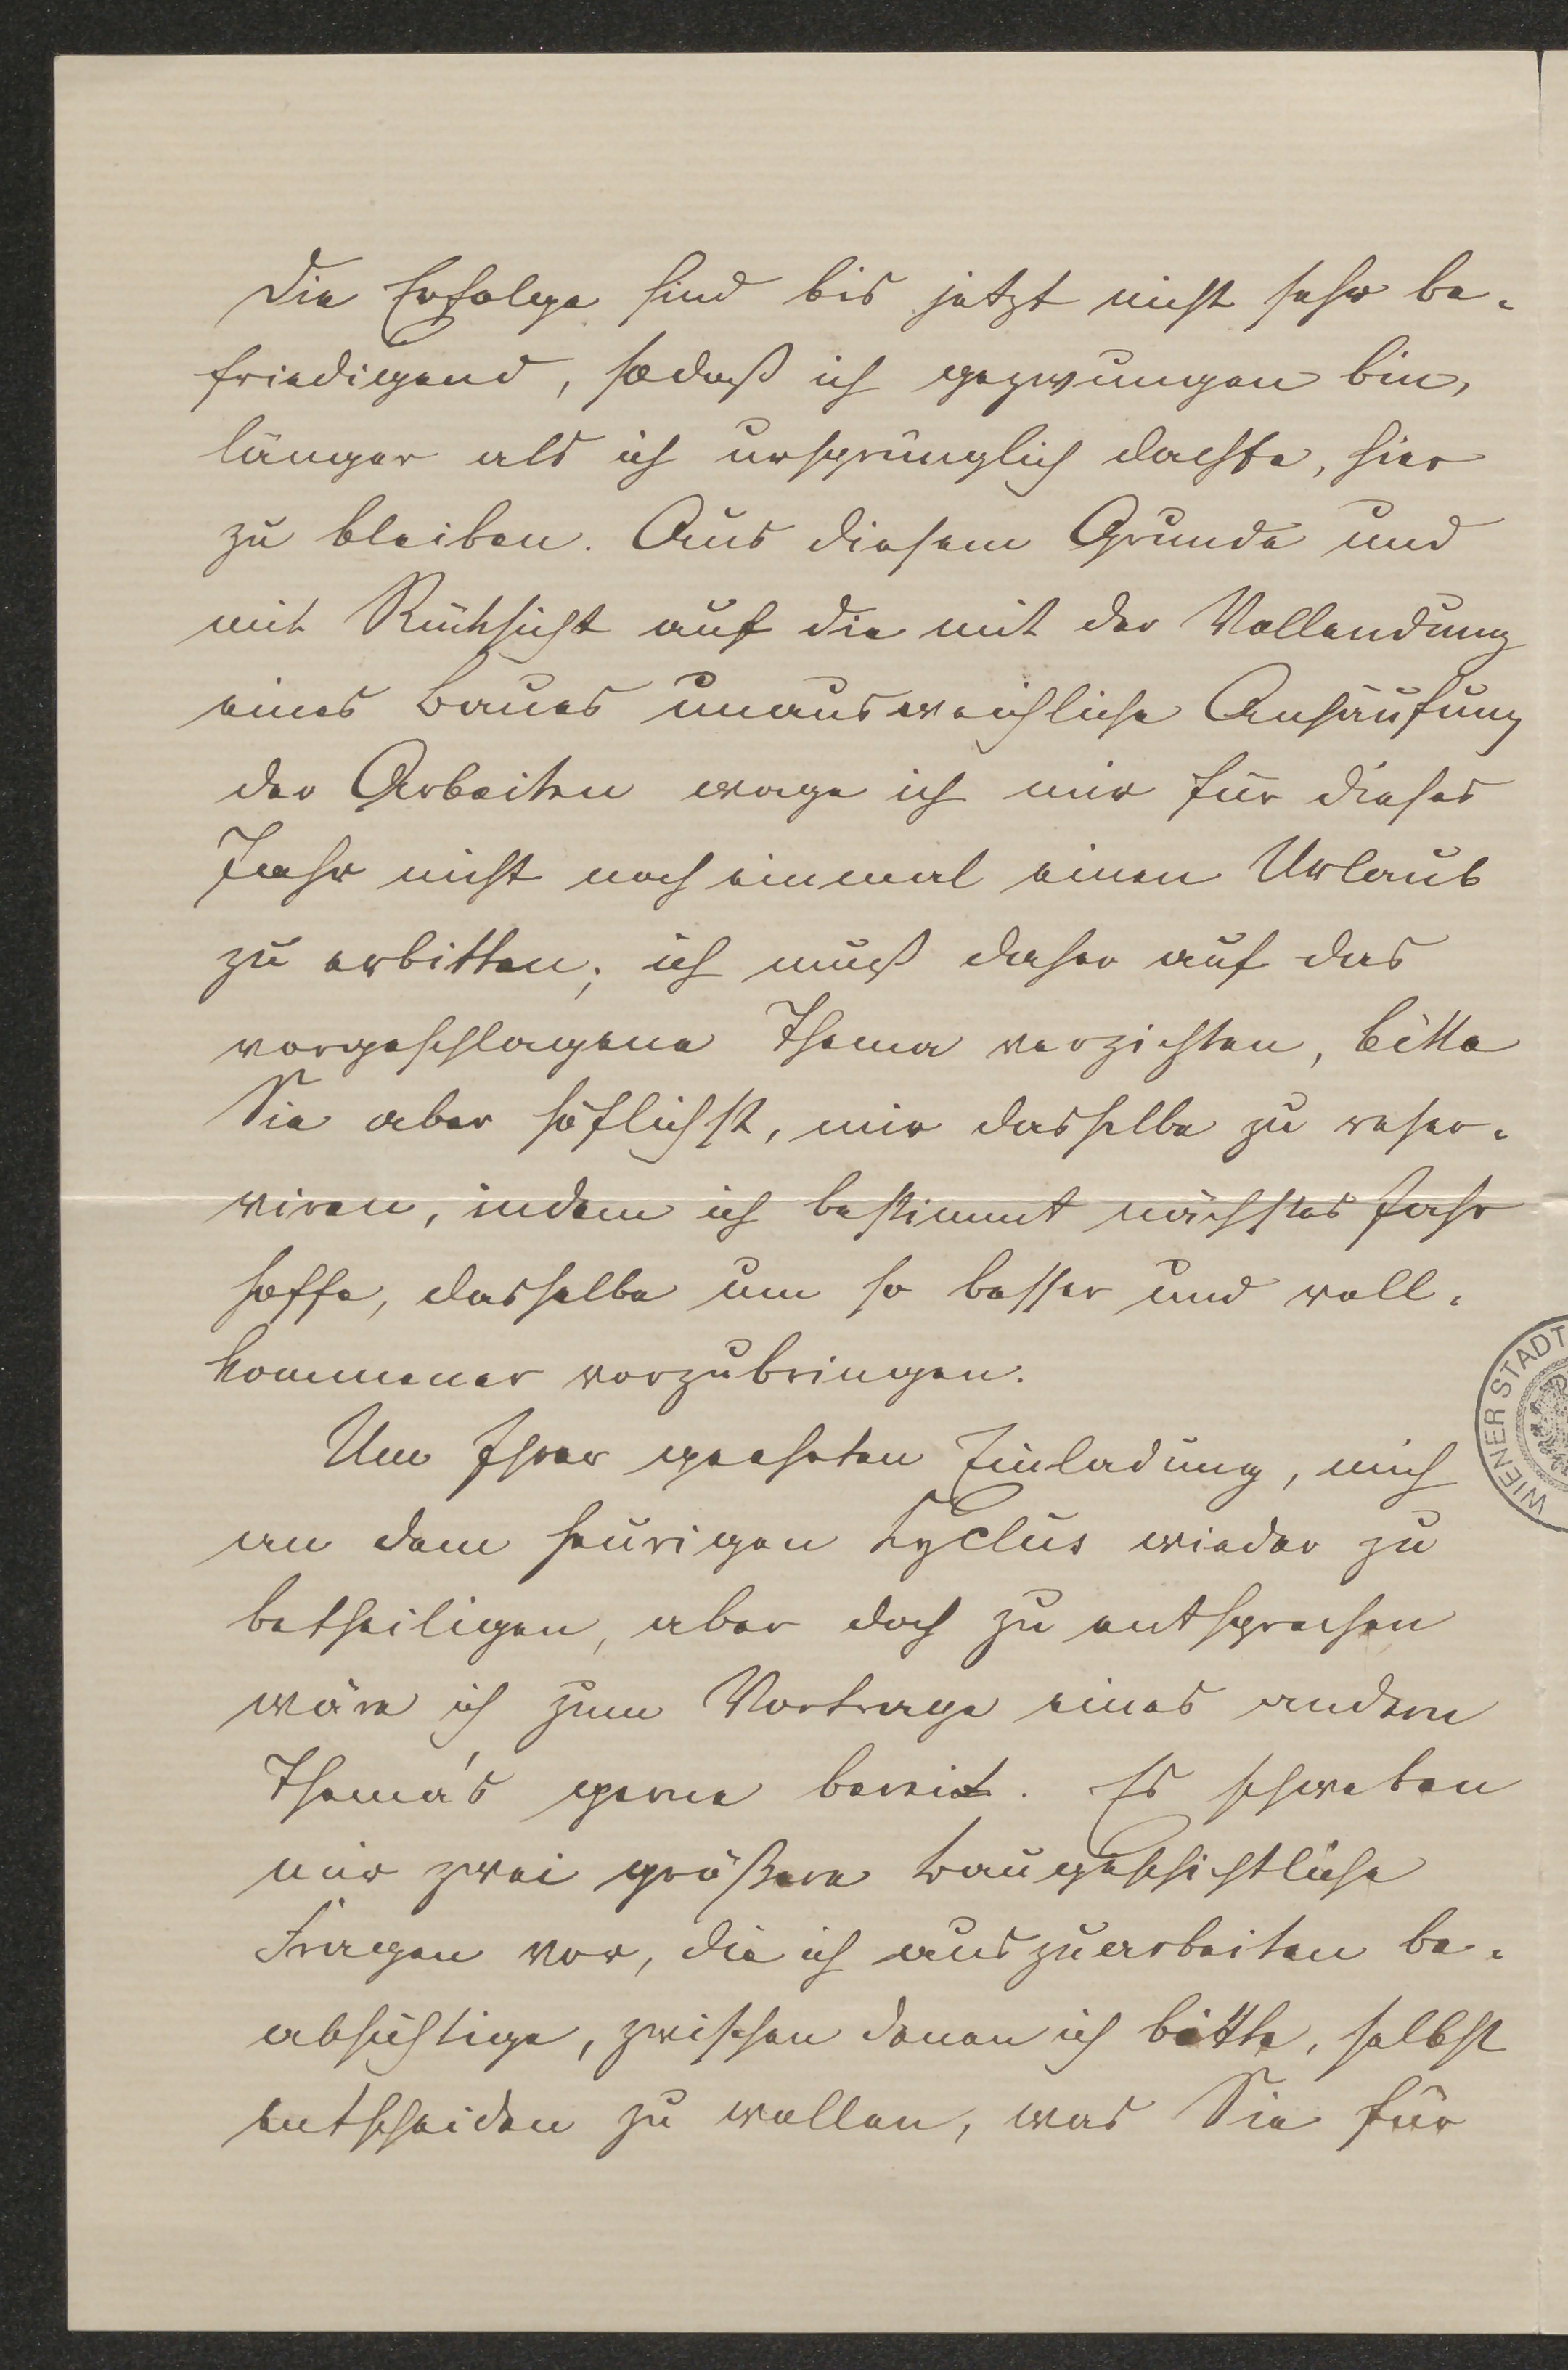 Die Erfolge sind bis jetzt nicht sehr be-
friedigend, sodaß ich gezwungen bin,
länger als ich ursprünglich dachte, hier
zu bleiben. Aus diesem Grunde und
mit Rücksicht auf die mit der Vollendung
eines Baues unausweichliche Anhäufung
der Arbeiten wage ich mir für dieses
Jahr nicht noch einmal einen Urlaub
zu erbitten; ich muß daher auf das
vorgeschlagene Thema verzichten, bitte
Sie aber höflichst, mir dasselbe zu reser-
viren, indem ich bestimmt nächstes Jahr
hoffe, dasselbe um so besser und voll-
kommener vorzubringen.
Um Ihrer geehrten Einladung, mich
an dem heurigen Cyclus wieder zu
betheiligen, aber doch zu entsprechen
wäre ich zum Vortrage eines andern
Thema's gerne bereit. Es schweben
mir zwei größere baugeschichtliche
Fragen vor, die ich auszuarbeiten be-
absichtige, zwischen denen ich bitte, selbst
entscheiden zu wollen, was Sie für
WIENER STADT